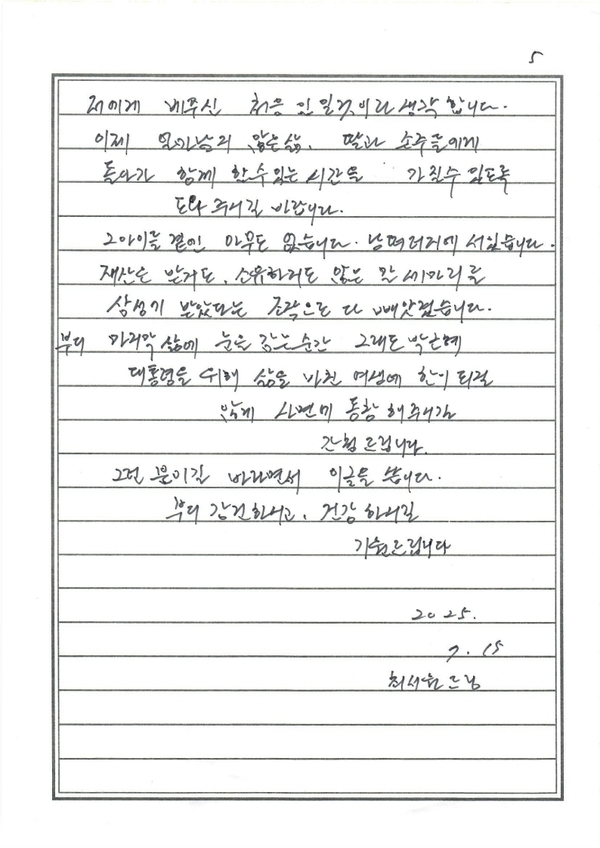 5
저에게 베푸신 처음인 일것이라 생각 합니다.
이제 얼마남지 않은삶, 딸과 손주들에게
돌아가 함께 할수있는 시간을 가질수 있도록
도와 주시길 바랍니다.
그아이들 곁엔 아무도 없습니다. 낭떠러지에 서있습니다.
재산은 받지도, 소유하지도 않은 말 세마리를
삼성이 받았다는 조작으로 다 빼앗겼습니다.
부디 마지막 삶에 눈을 감는순간 그래도 박근혜
대통령을 위해 삶을 바친 여생에 한이 되질
않게 사면에 동참 해주시길
간청드립니다.
그런 분이길 바라면서 이글을 씁니다.
부디 강건하시고, 건강 하시길
기원드립니다
2025.
7. 15
최서원 드림